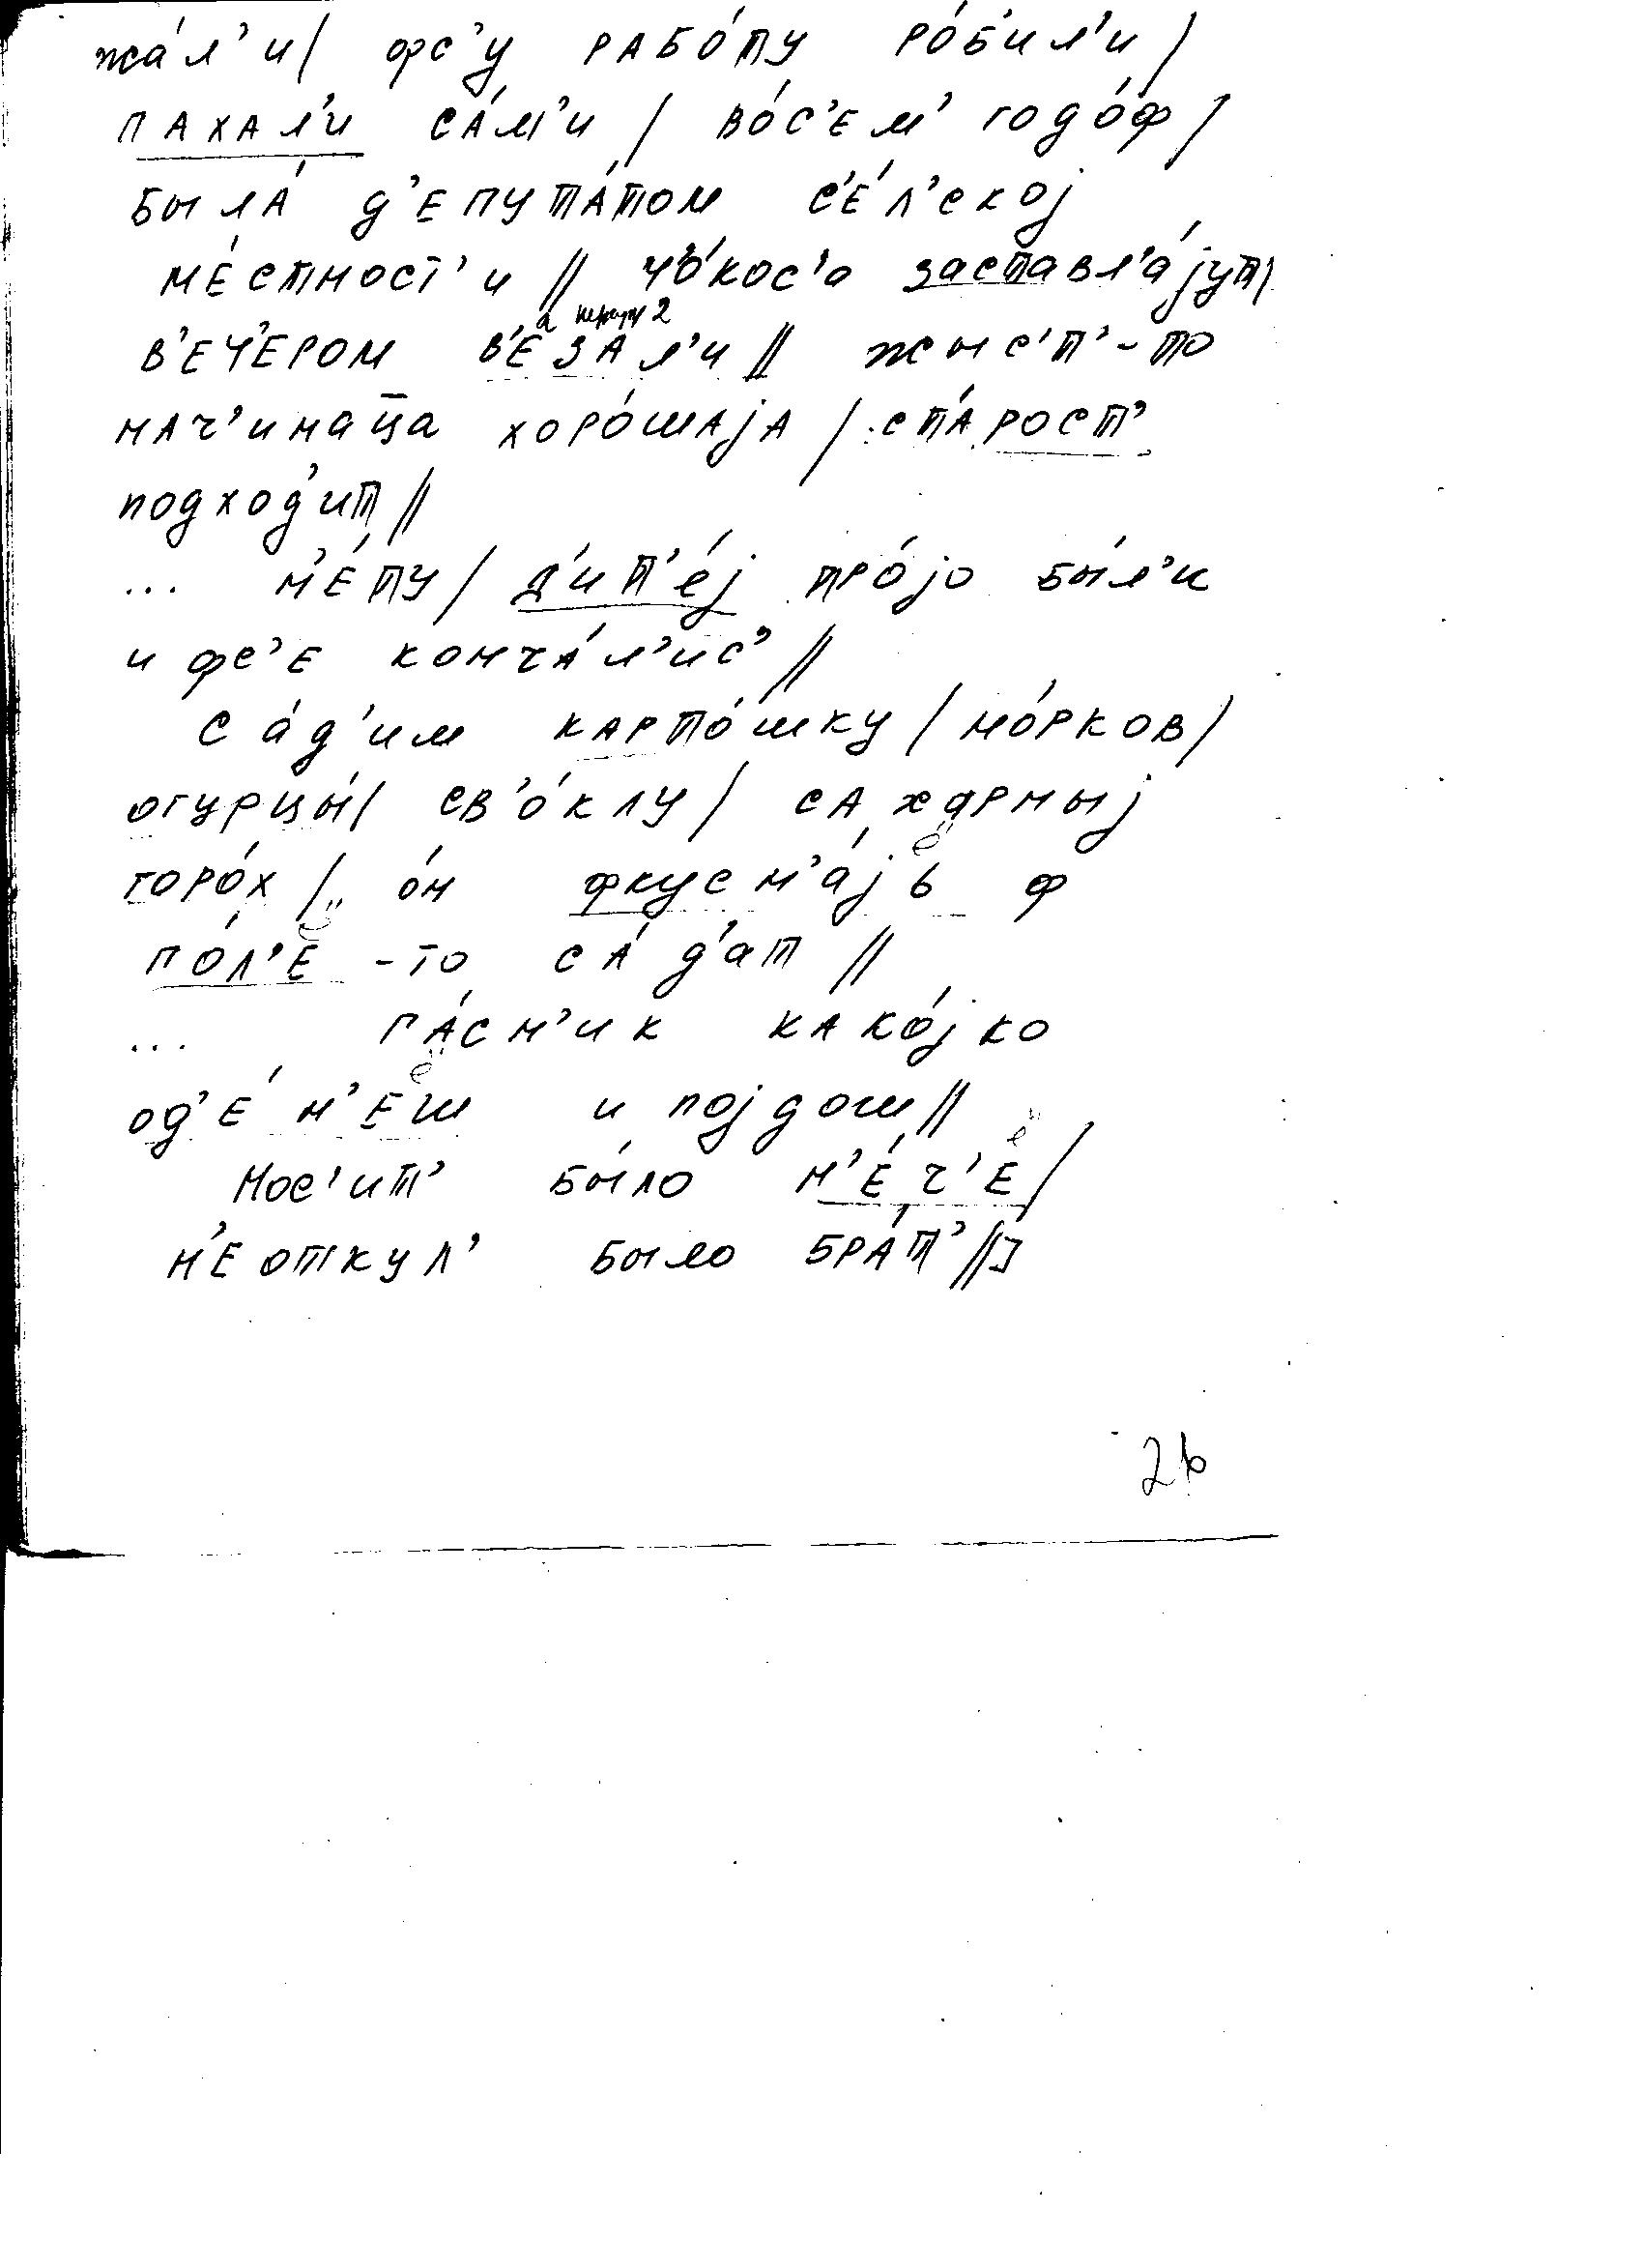 жа́л'и/ фс'у рабо́ту ро́б'ил'и/
пахал'и са́м'и / во́с'ем' годо́ф/
была́ д'епута́том с'е́л'ској
ме́стност'и // чо́кос'о заставл'а́јут/
в'еч'ером в'еза́л'и // жыс'т'-то
нач'инаца хоро́шаја / ста́рост'
подход'ит //
... н'е́ту/ д'ит'е́ј тро́јо бы́л'и
и фс'е конча́л'ис' //
са́д'им карто́шку / мо́рков/
огурцы́/ св'о́клу/ сахарныј
горо́х /, о́н фкусн'а́јь ф
по́л'е-то са́д'ат //
... па́сн'ик како́јко
од'е́н'еш и појдош//
нос'ит' бы́ло н'е́ч'е/
н'еоткул' было бра́т' //]
26